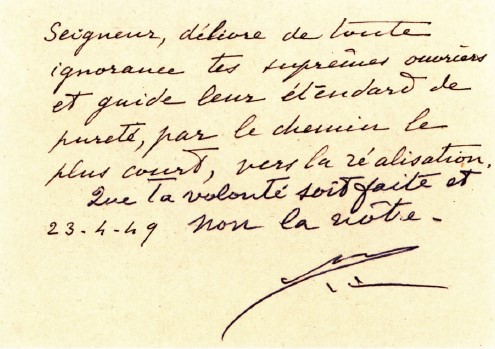 Seigneur, délivre de toute
ignorance tes suprêmes ouvriers
et guide leur étendard de
pureté, par le chemin le
plus court, vers la réalisation.
Que ta volonté soit faite et
23-4-49 non la nôtre.